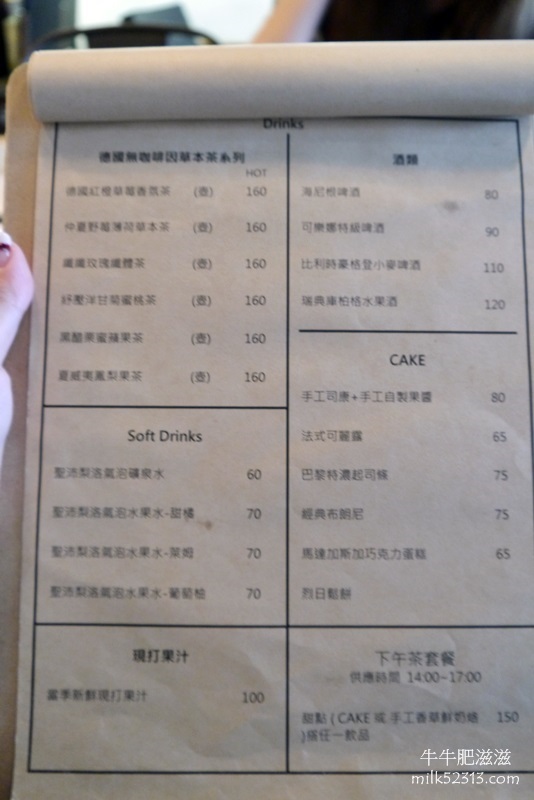 Drinks
德國無咖啡因草本茶系列
HOT
德國紅橙草莓香氛茶 (壺) 160
仲夏野莓薄荷草本茶 (壺) 160
纖纖玫瑰纖體茶 (壺) 160
紓壓洋甘菊蜜桃茶 (壺) 160
黑醋栗蜜蘋果茶 (壺) 160
夏威夷鳳梨果茶 (壺) 160
Soft Drinks
聖沛黎洛氣泡礦泉水 60
聖沛梨洛氣泡水果水-甜橘 70
聖沛梨洛氣泡水果水-萊姆 70
聖沛梨洛氣泡水果水-葡萄柚 70
現打果汁
當季新鮮現打果汁 100
酒類
海尼根啤酒 80
可樂娜特級啤酒 90
比利時豪格登小麥啤酒 110
瑞典庫柏格水果酒 120
CAKE
手工司康+手工自製果醬 80
法式可麗露 65
巴黎特濃起司條 75
經典布朗尼 75
馬達加斯加巧克力蛋糕 65
烈日鬆餅
下午茶套餐
供應時間 14:00~17:00
甜點 ( CAKE 或 手工香草鮮奶酪 150
)搭任一飲品
牛牛肥滋滋
milk52313.com